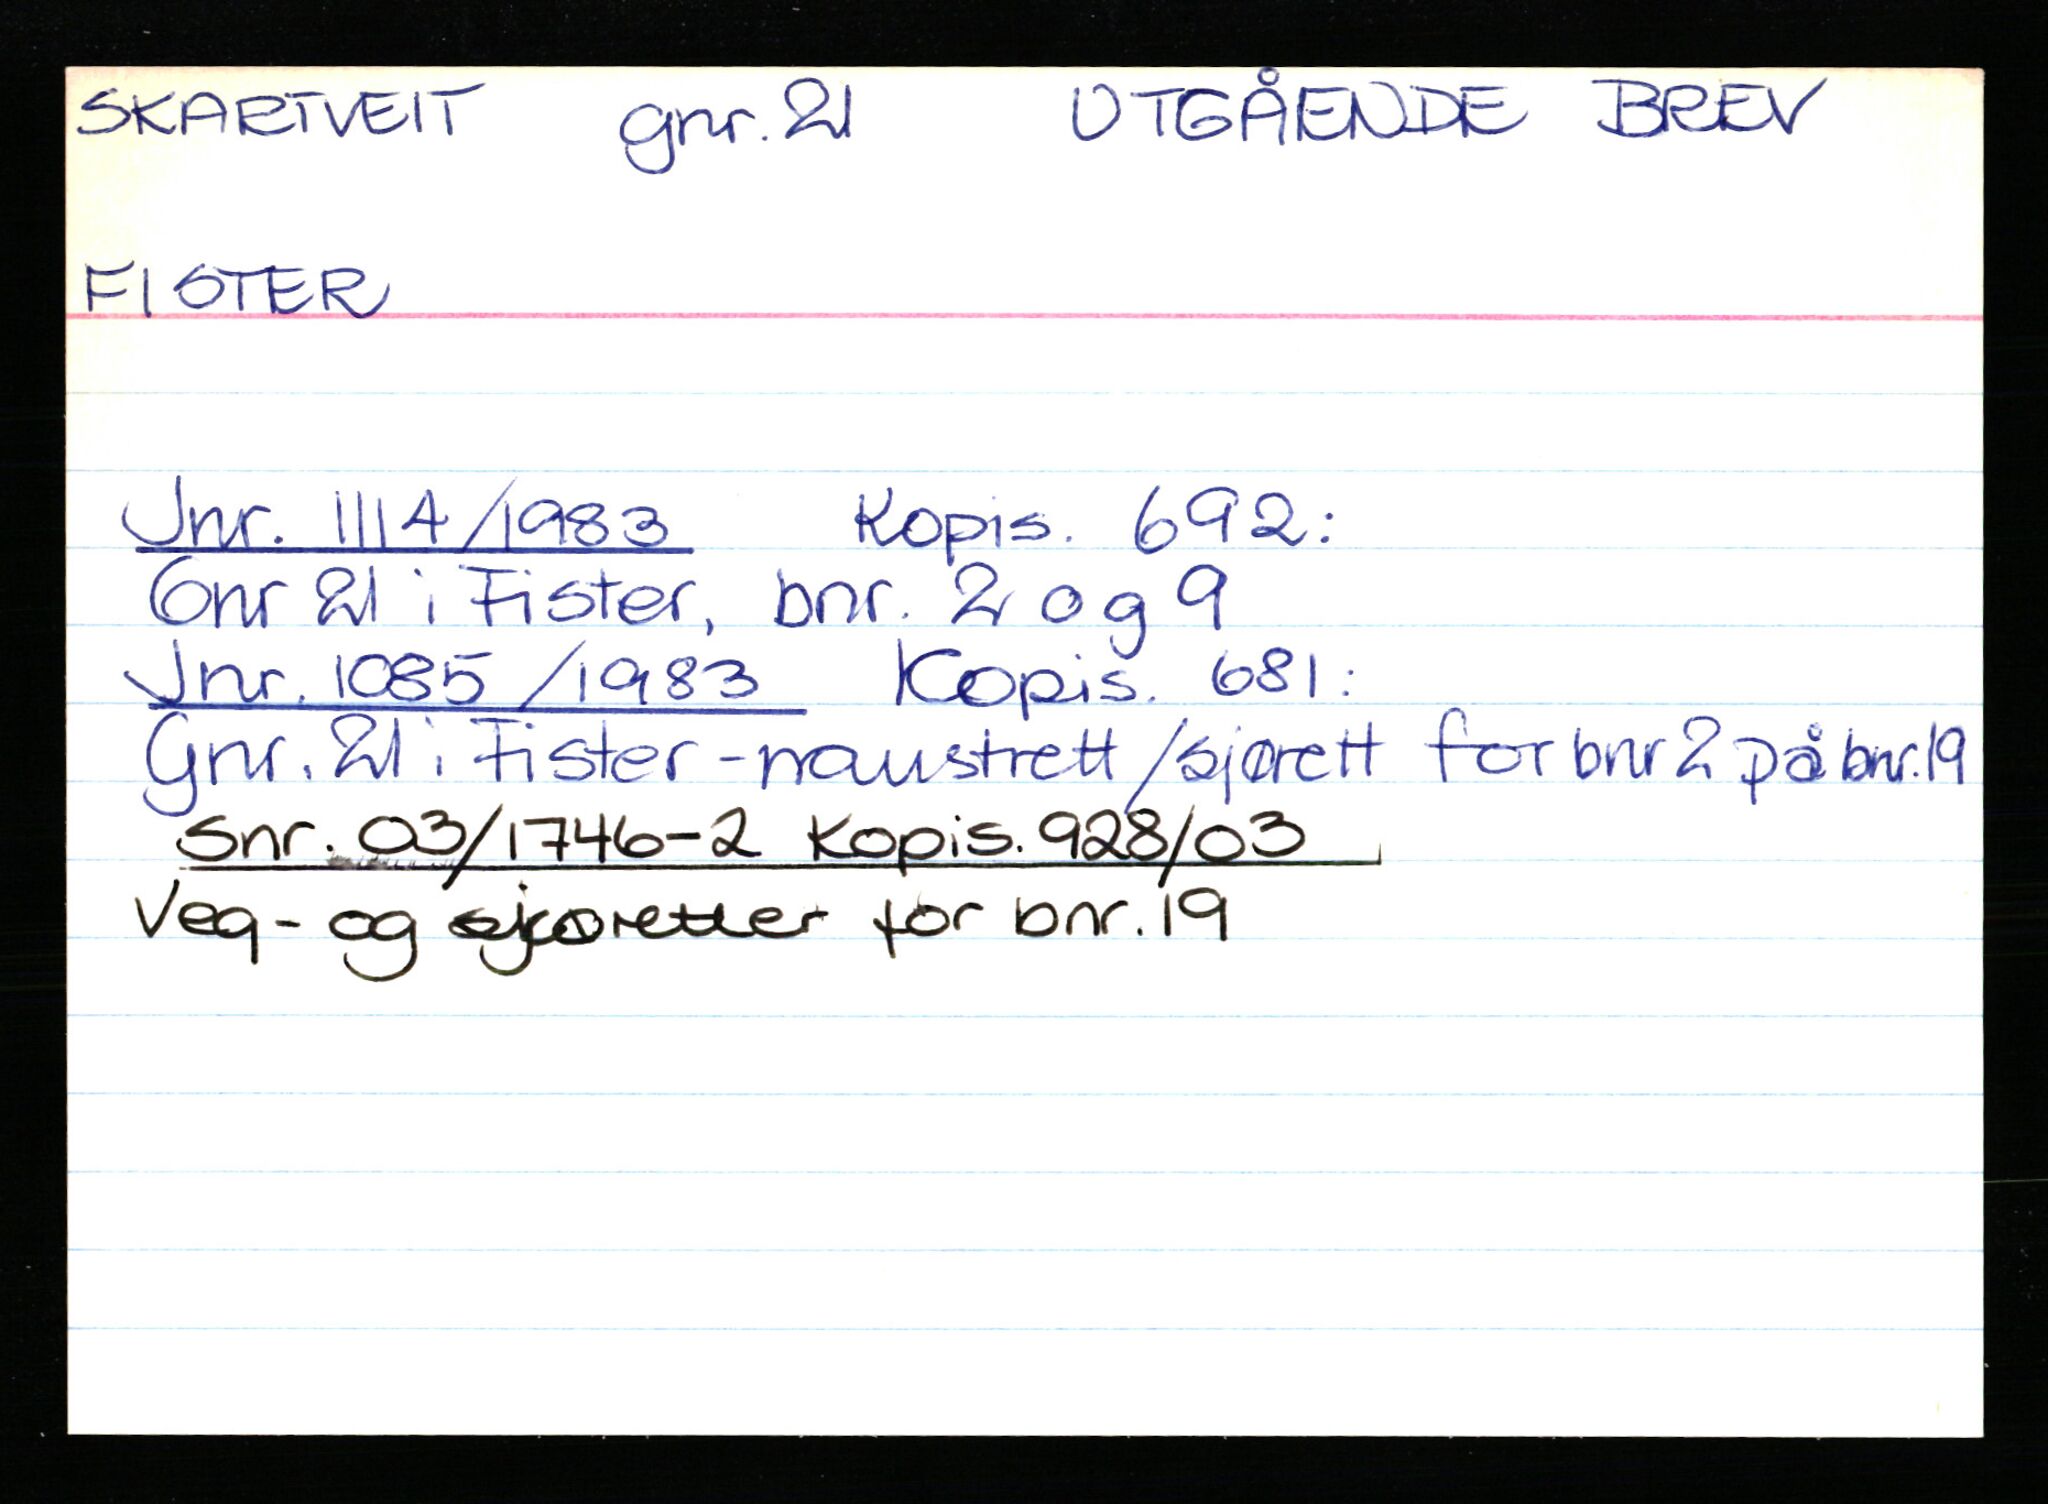 SKARTVEIT gnr. 21 UTGÅENDE BREV
FISTER
Jnr. 1114/1983 Kopis. 692:
Gnr 21 i Fister, bnr. 2 og 9
Jnr. 1085/1983 Kopis. 681:
Gnr. 21 i Fister - naustrett/sjørett for bnr 2 på bnr. 19
Snr. 03/1746-2 Kopis. 928/03
Veg- og sjøretter for bnr. 19